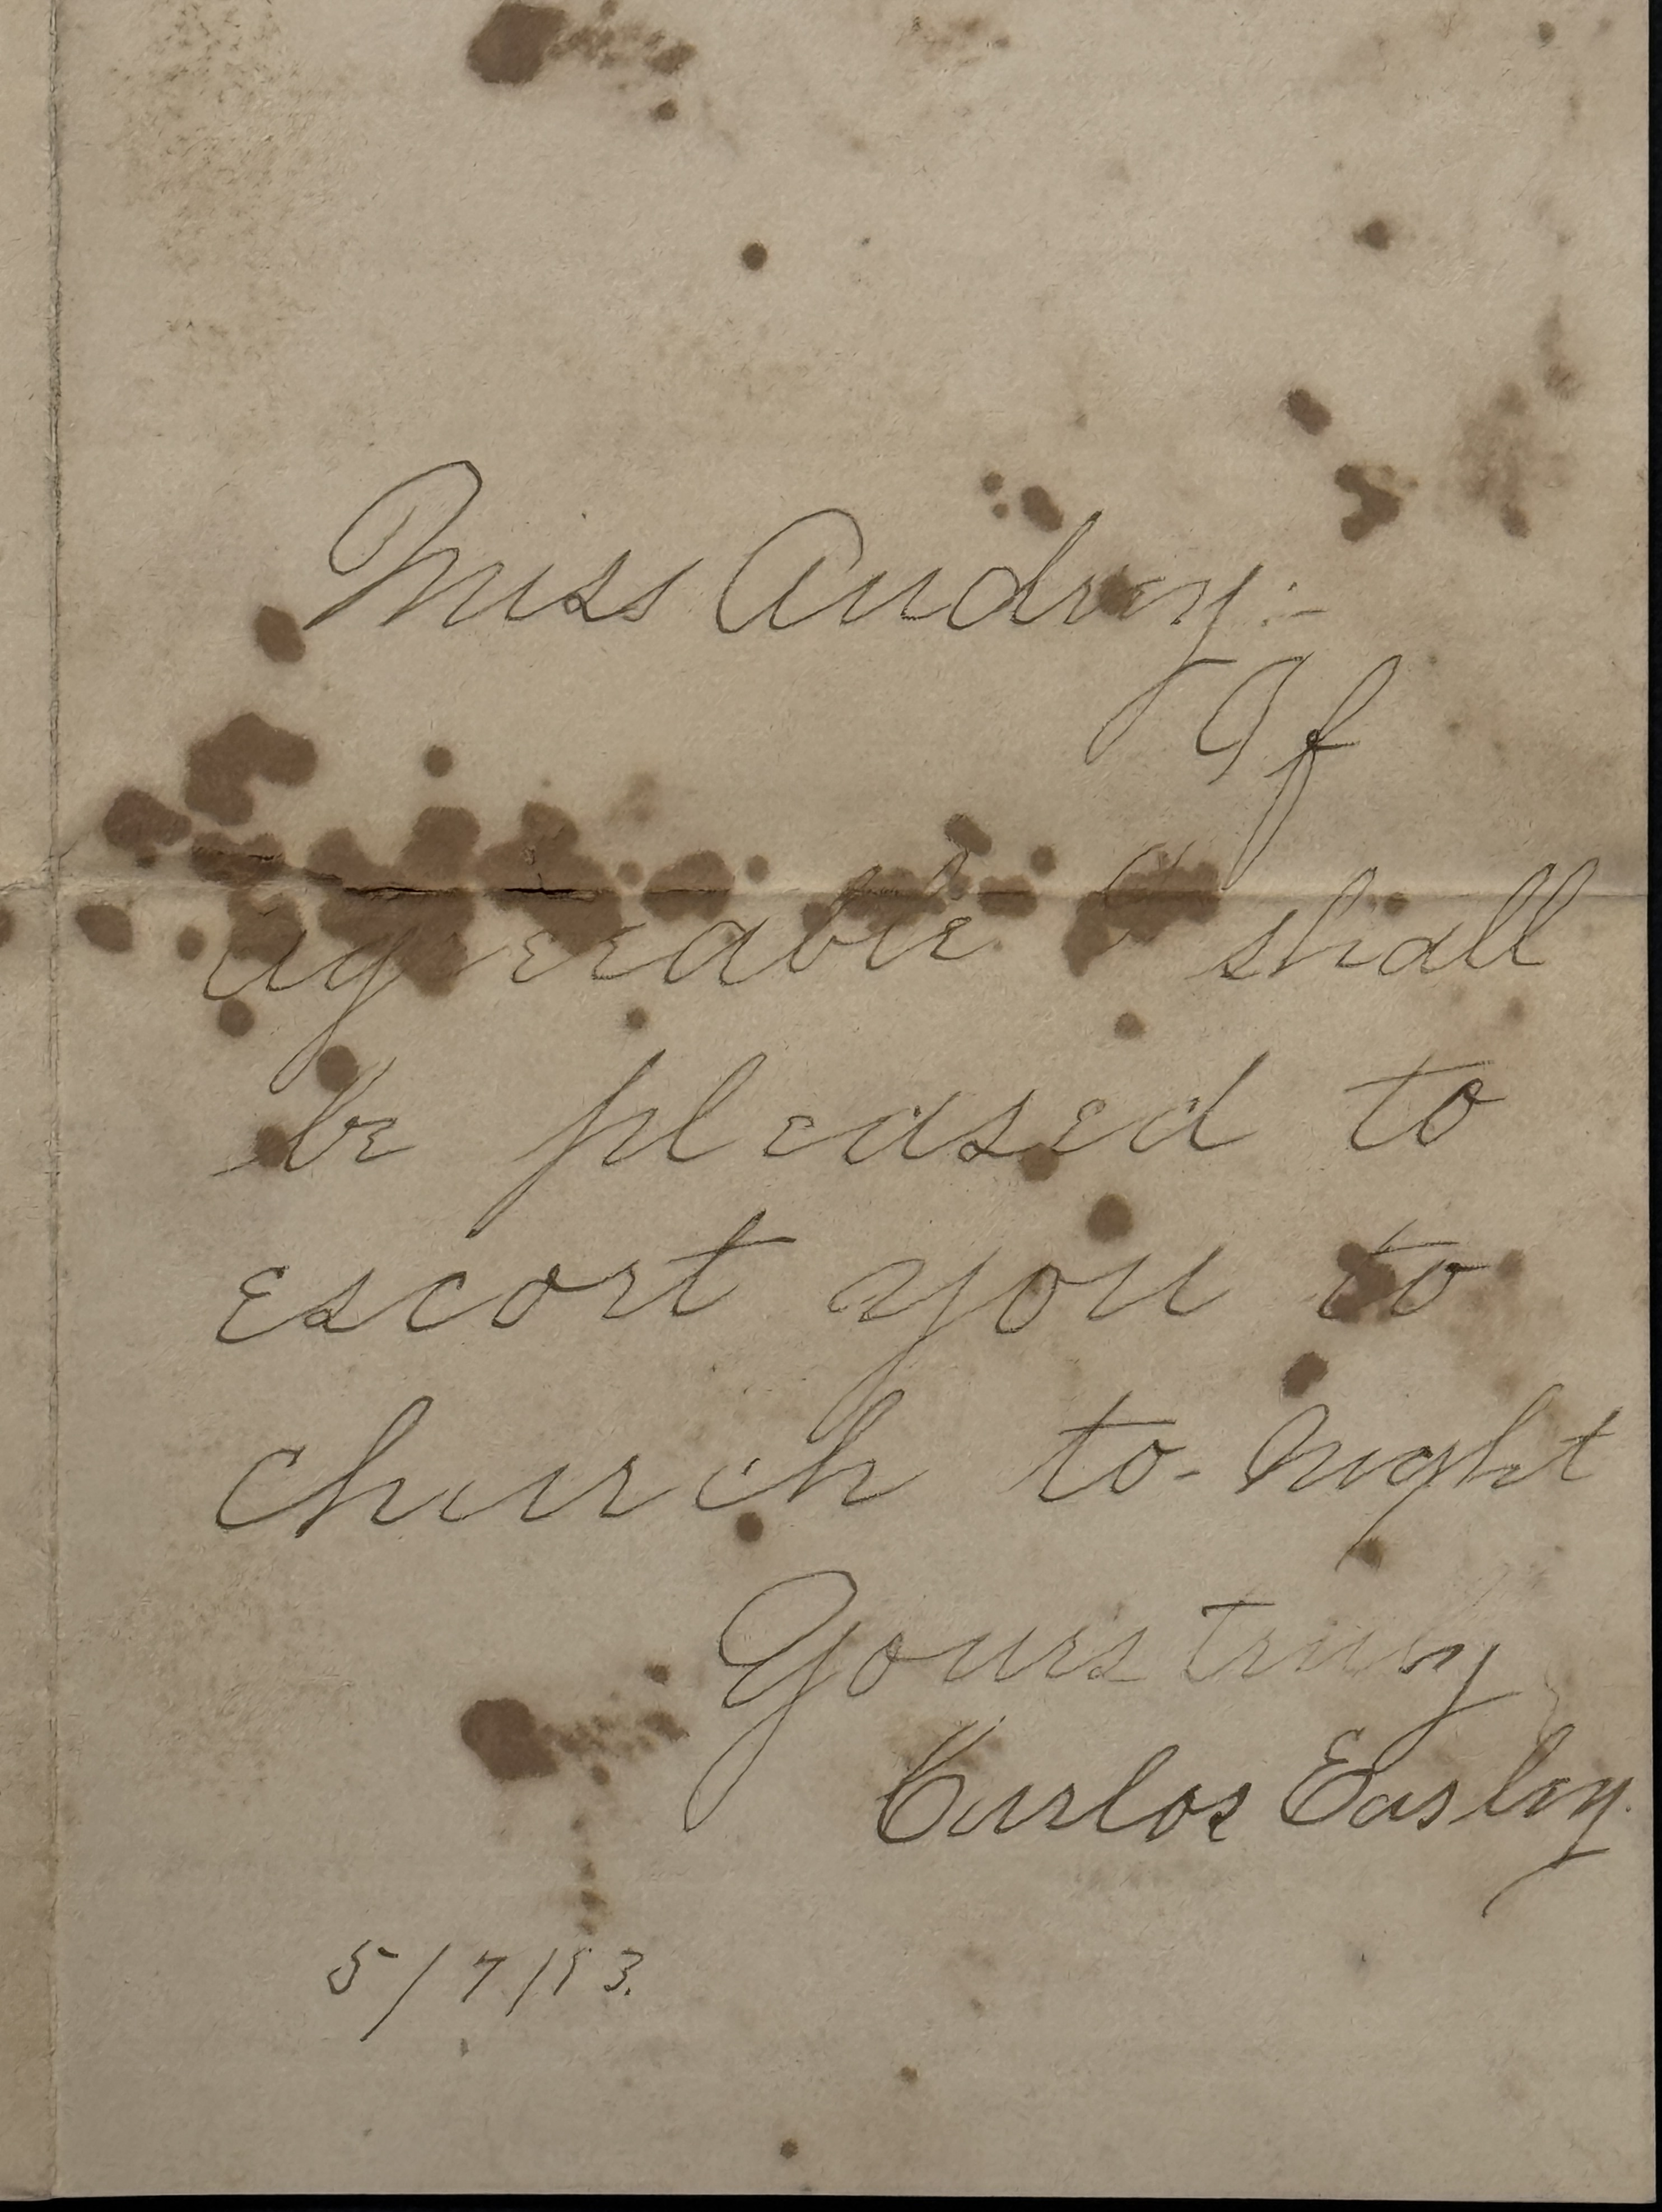 Miss Audrey:-
If
agreeable I shall
be pleased to
escort you to
church to-night
Yours truly
Carlos Easley.
5/7/13.